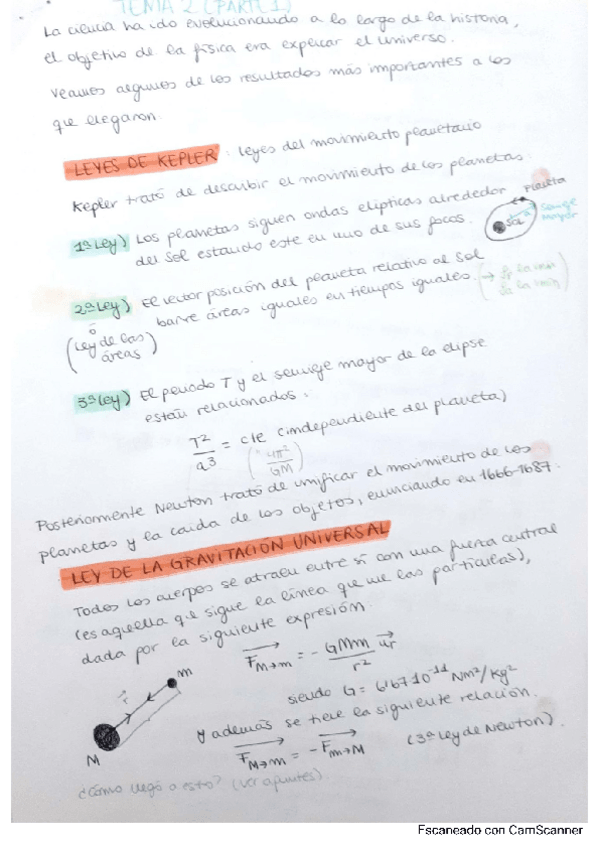 TEMA 2 (PARTE 1)
La ciencia ha ido evolucionando a lo largo de la historia,
el objetivo de la física era explicar el universo.
Veamos algunos de los resultados más importantes a los
que llegaron.
LEYES DE KEPLER : leyes del movimiento planetario
Kepler trató de describir el movimiento de los planetas.
1ª Ley) Los planetas siguen ondas elípticas alrededor
del Sol estando este en uno de sus focos.
Planeta
Sol
Semieje
mayor
2ª Ley) El vector posición del planeta relativo al Sol
barre áreas iguales en tiempos iguales.
ó
(Ley de las
áreas)
3ª Ley) El periodo T y el semieje mayor de la elipse
están relacionados:
T²/a³ = cte (independiente del planeta)
(4π²/GM)
Posteriormente Newton trató de unificar el movimiento de los
planetas y la caída de los objetos, enunciando en 1666-1687:
LEY DE LA GRAVITACIÓN UNIVERSAL
Todos los cuerpos se atraen entre sí con una fuerza central
(es aquella q sigue la línea que une las partículas),
dada por la siguiente expresión.
F M→m = - GMm/r² ur
m
r
M
siendo G = 6'67 10⁻¹¹ Nm²/kg²
y además se tiene la siguiente relación.
F M→m = - F m→M (3ª ley de Newton).
¿Cómo llegó a esto? (ver apuntes)
Escaneado con CamScanner